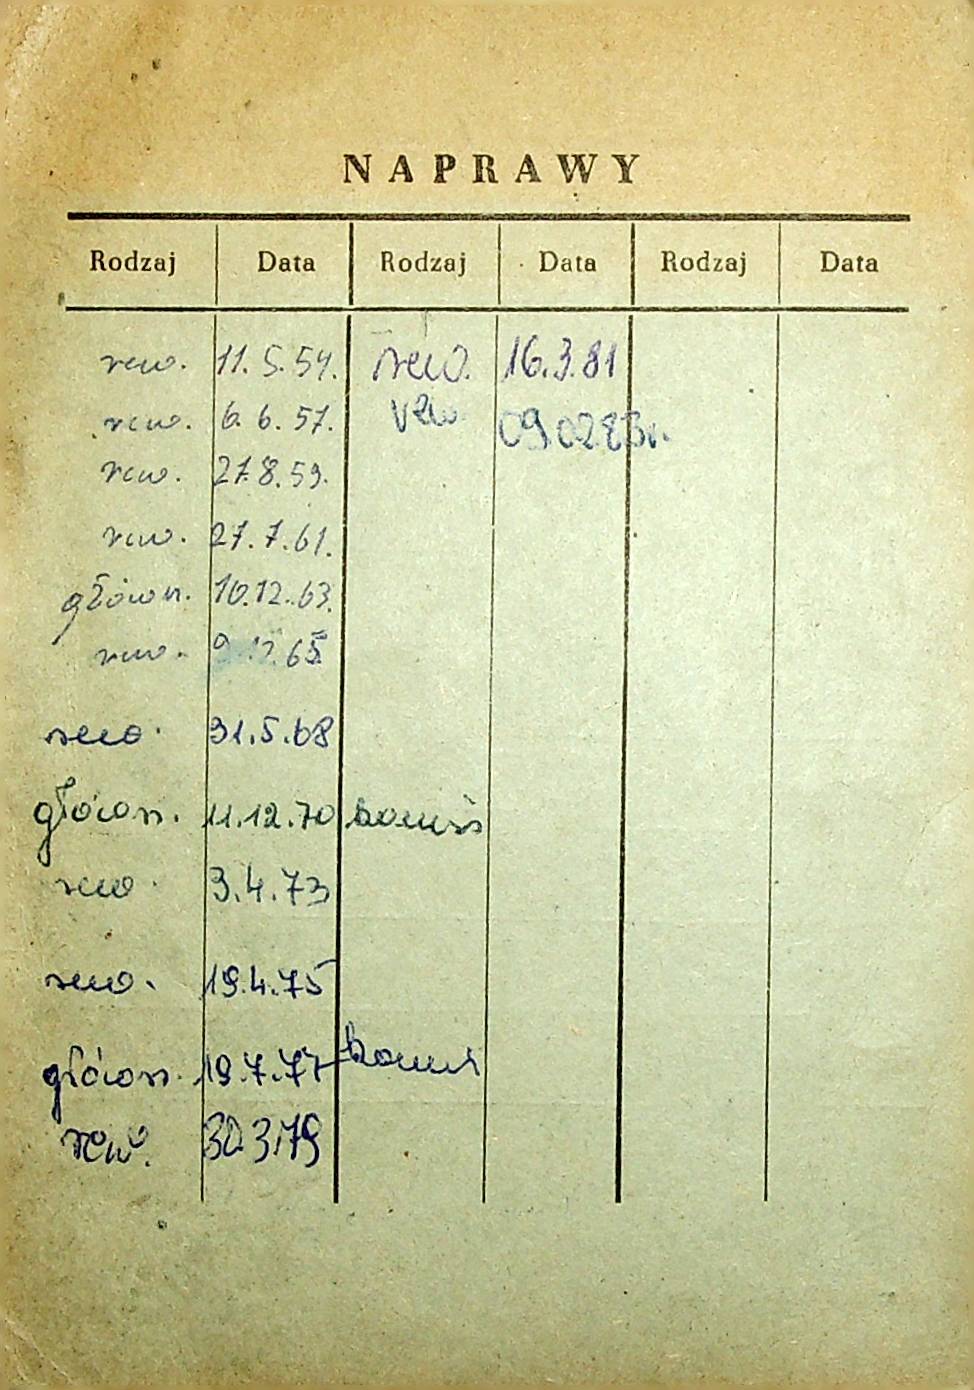 NAPRAWY
Rodzaj Data Rodzaj Data Rodzaj Data
rew. 11.5.54. rew. 16.3.81
rew. 6.6.57. rew. 09.02.83r.
rew. 27.8.59.
rew. 27.7.61.
główn. 10.12.63.
rew. 9.12.65
rew. 31.5.68
główn. 11.12.70
rew. 3.4.73
rew. 19.4.75
główn. 19.7.77
rew. 30.3.79